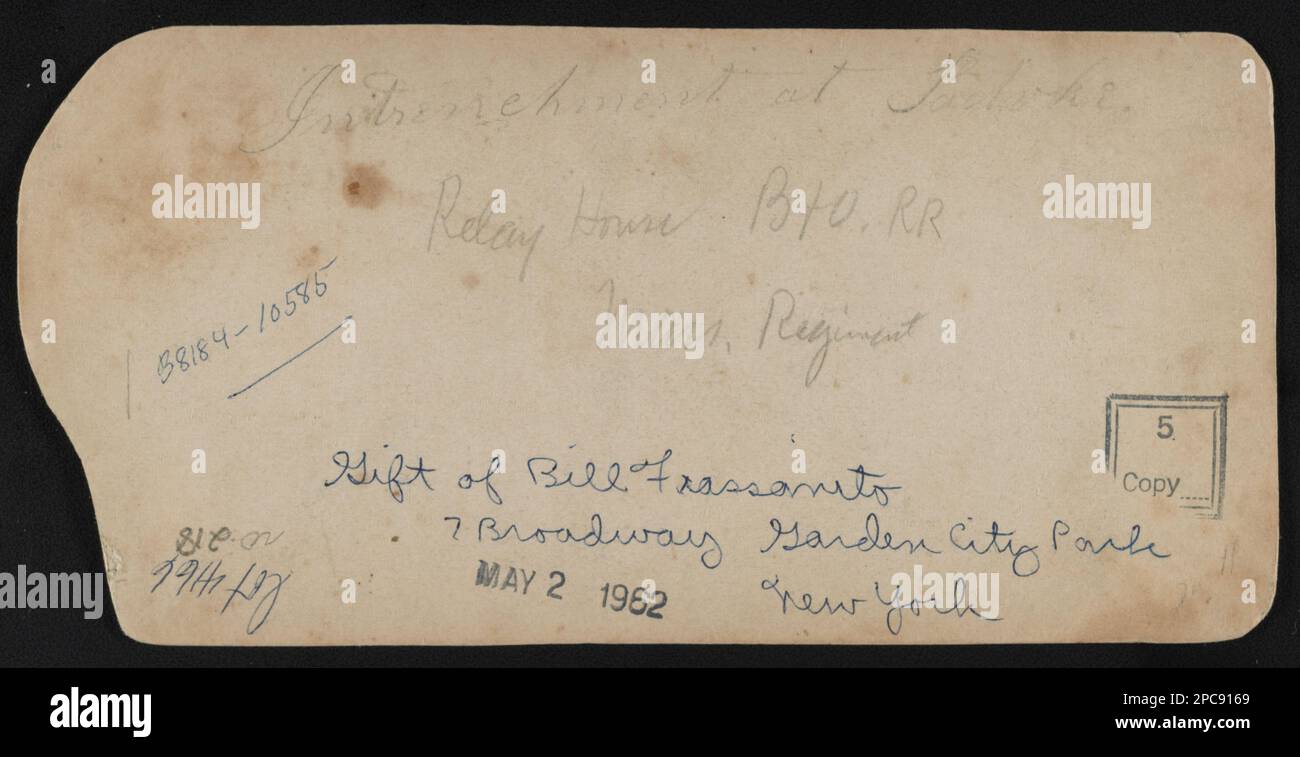 Intrenchment at
Relay House B+O. RR
Regiment
B8184-10585
5
Copy
Gift of Bill Frassanito
7 Broadway Garden City Park
New York
MAY 2 1962
no. 218
Lot 4166
alamy
Image ID: 2PC9169
www.alamy.com